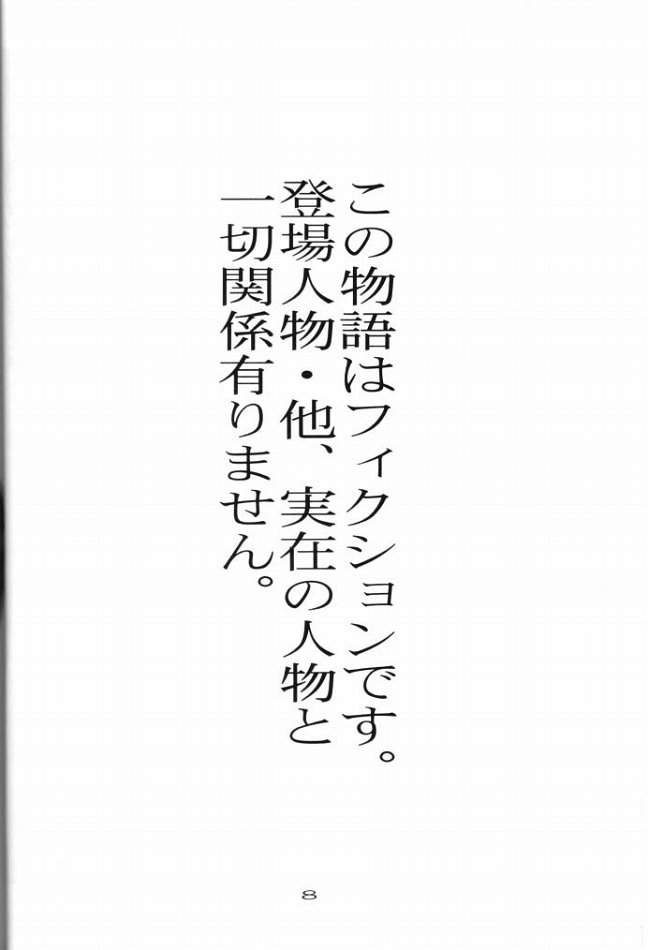 この物語はフィクションです。
登場人物・他、実在の人物と
一切関係有りません。
8